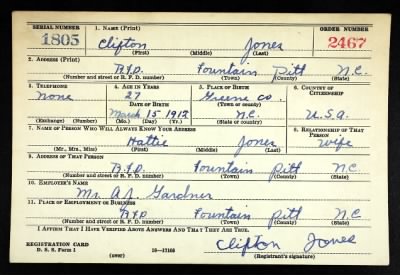 SERIAL NUMBER 1. NAME (Print) ORDER NUMBER
1805 Clifton Jones 2467
(First) (Middle) (Last)
2. ADDRESS (Print)
R.F.D. Fountain Pitt N.C.
(Number and street or R. F. D. number) (Town) (County) (State)
3. TELEPHONE 4. AGE IN YEARS 5. PLACE OF BIRTH 6. COUNTRY OF CITIZENSHIP
none 27 Greene Co.
DATE OF BIRTH (Town or county)
March 15 1912 N.C. U.S.A.
(Exchange) (Number) (Mo.) (Day) (Yr.) (State or country)
7. NAME OF PERSON WHO WILL ALWAYS KNOW YOUR ADDRESS 8. RELATIONSHIP OF THAT PERSON
Hattie Jones wife
(Mr., Mrs., Miss) (First) (Middle) (Last)
9. ADDRESS OF THAT PERSON
R.F.D. Fountain Pitt N.C.
(Number and street or R. F. D. number) (Town) (County) (State)
10. EMPLOYER'S NAME
Mr. A.J. Gardner
11. PLACE OF EMPLOYMENT OR BUSINESS
RFD Fountain Pitt N.C.
(Number and street or R. F. D. number) (Town) (County) (State)
I AFFIRM THAT I HAVE VERIFIED ABOVE ANSWERS AND THAT THEY ARE TRUE.
REGISTRATION CARD Clifton Jones
D. S. S. Form 1 16-17105 (Registrant's signature)
(over)